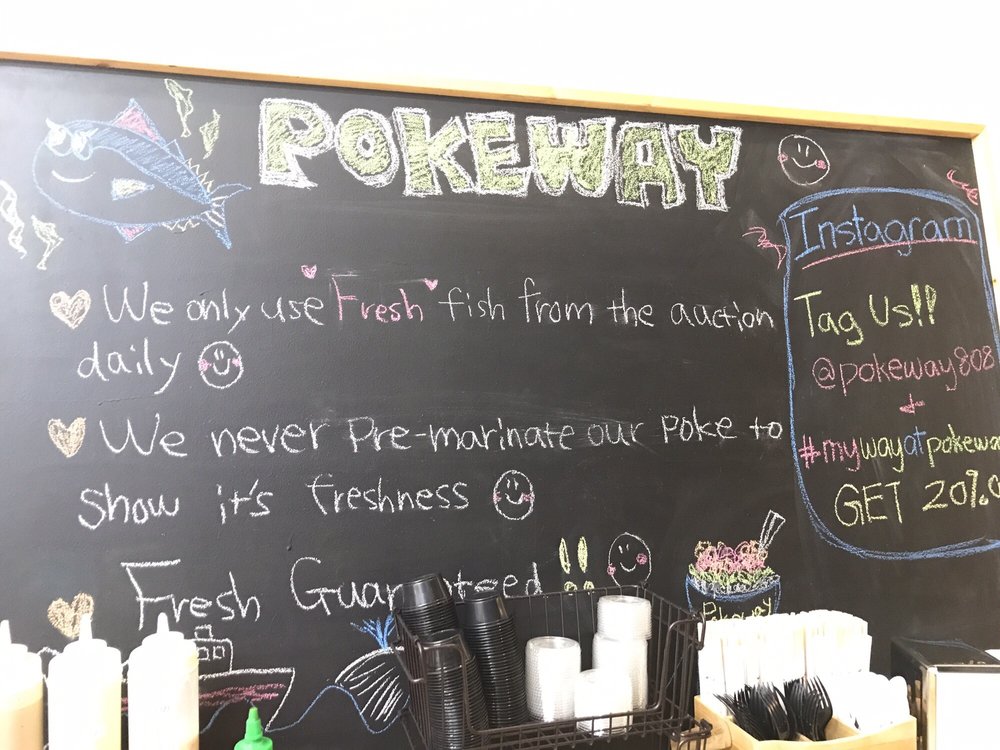 POKEWAY
We only use Fresh fish from the auction
daily
We never Pre-marinate our poke to
show it's freshness
Fresh Guaranteed !!
Pokeway
Instagram
Tag Us!!
@pokeway808
+
#mywayatpokeway
GET 20%